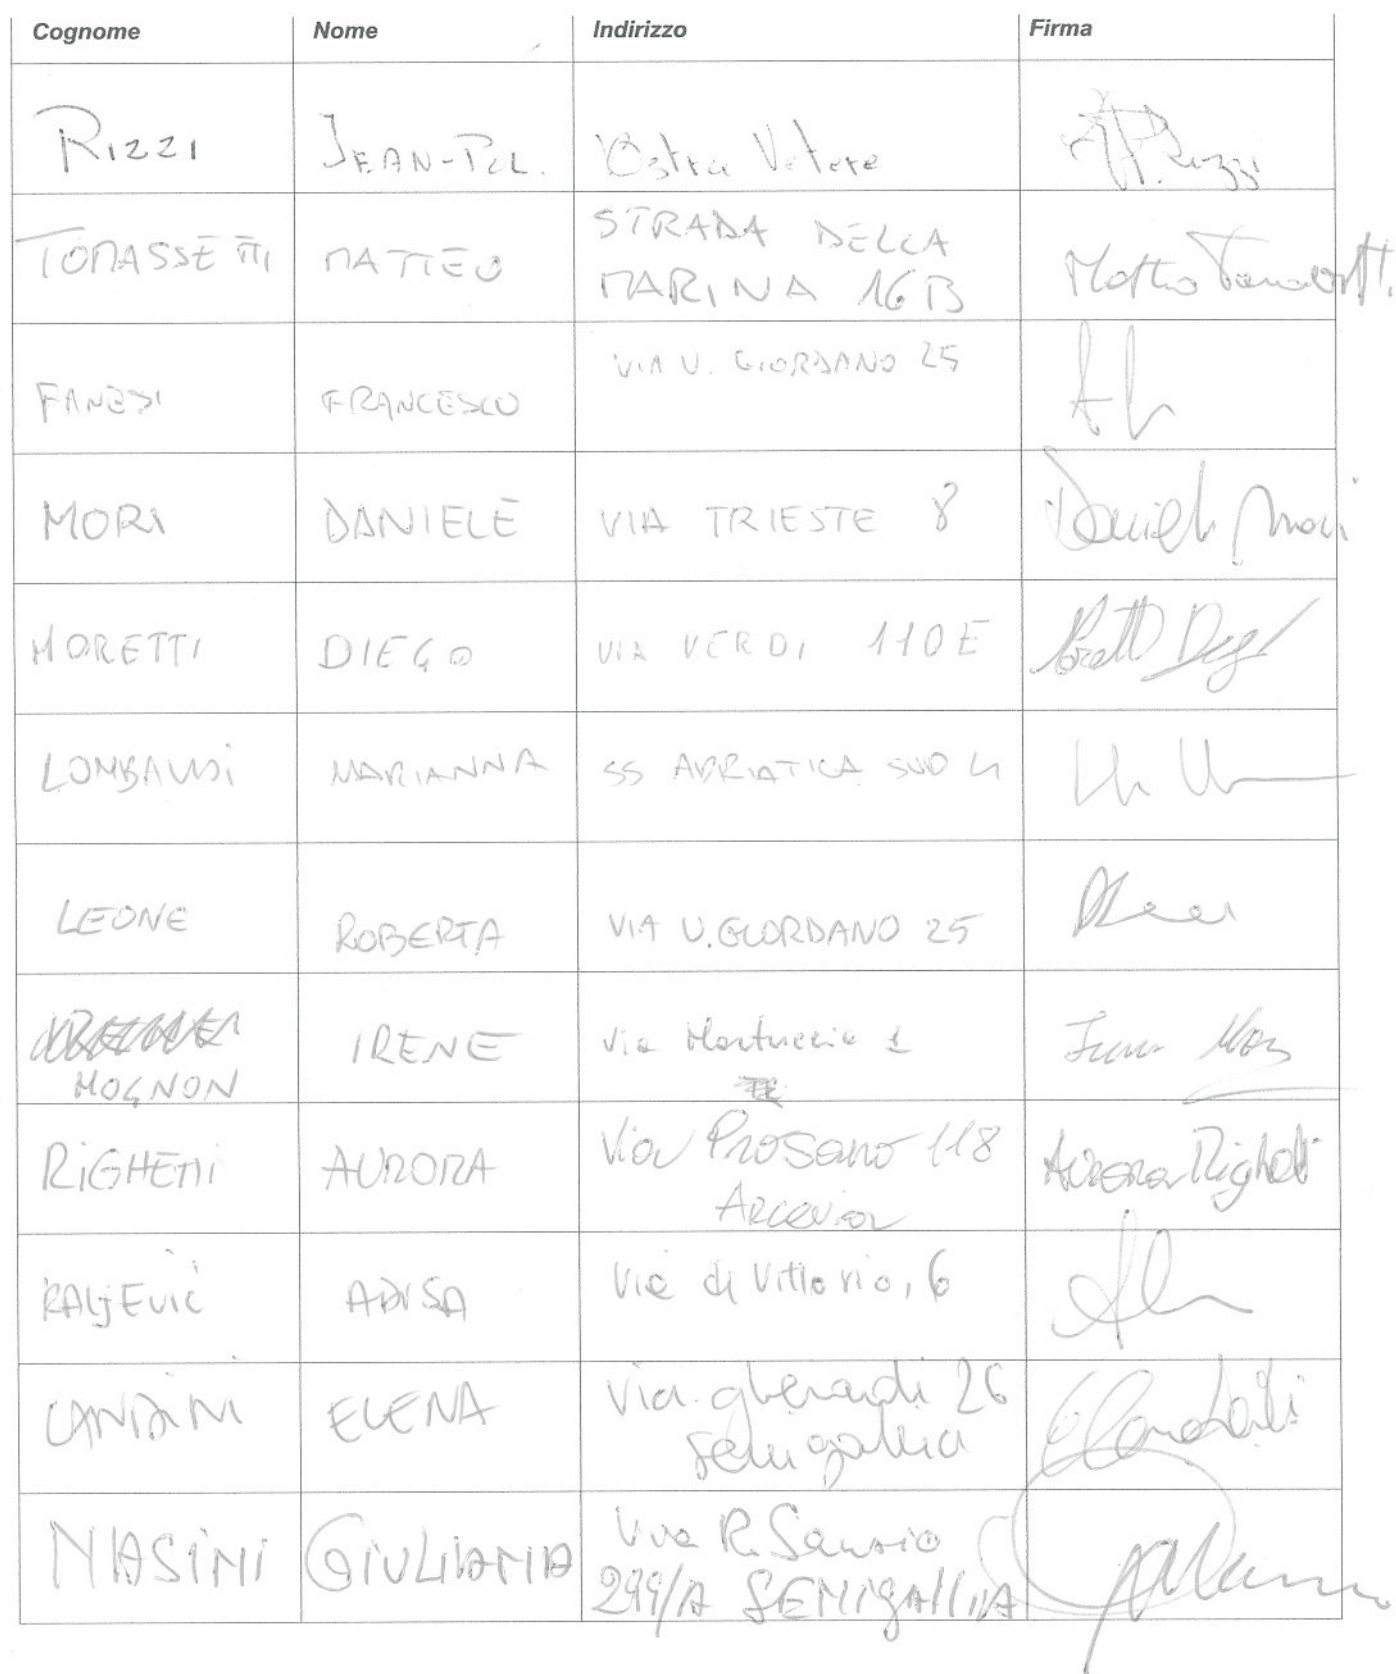 Cognome Nome Indirizzo Firma
RIZZI JEAN-POL. Ostra Vetere JP Rizzi
TOMASSETTI MATTEO STRADA DELLA
MARINA 16B Matteo Tomassetti
FANESI FRANCESCO VIA U. GIORDANO 25
MORI DANIELE VIA TRIESTE 8 Daniele Mori
MORETTI DIEGO VIA VERDI 110E Moretti Diego
LOMBARDI MARIANNA SS ADRIATICA SUD
LEONE ROBERTA VIA U. GIORDANO 25
IRENE Via 1
MOGNON
RIGHETTI AURORA Via Prosano 118 Aurora Righetti
Arcevia
RALJEVIC ADISA Via di Vittorio, 6
CANDINI ELENA Via gherardi 26
Senigallia
MASINI GIULIANA Via R. Sanzio
299/A SENIGALLIA